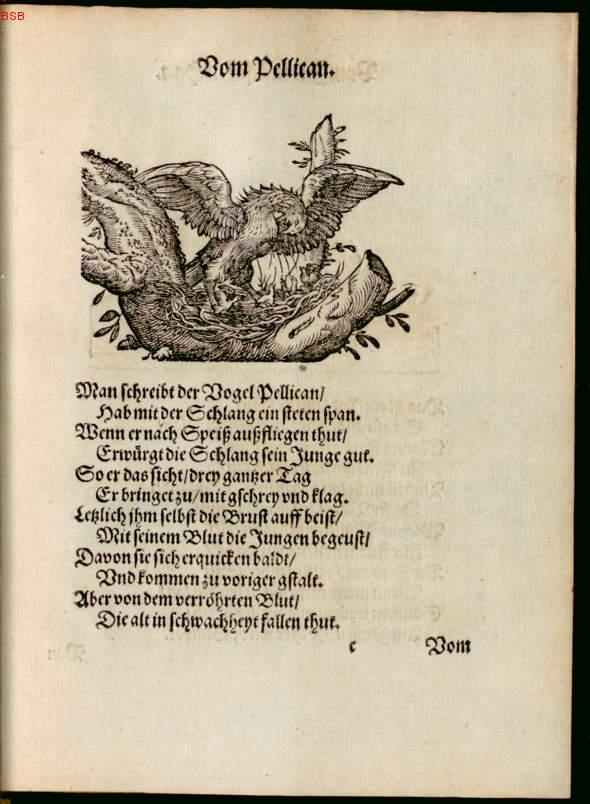 BSB
Vom Pellican.
Man schreibt der Vogel Pellican/
Hab mit der Schlang ein steten span.
Wenn er nach Speiß außfliegen thut/
Erwürgt die Schlang sein Junge gut.
So er das sicht/drey gantzer Tag
Er bringet zu/mit gschrey vnd klag.
Letzlich jhm selbst die Brust auff beist/
Mit seinem Blut die Jungen begeust/
Davon sie sich erquicken baldt/
Vnd kommen zu voriger gstalt.
Aber von dem verröhrten Blut/
Die alt in schwachheyt fallen thut.
c Vom